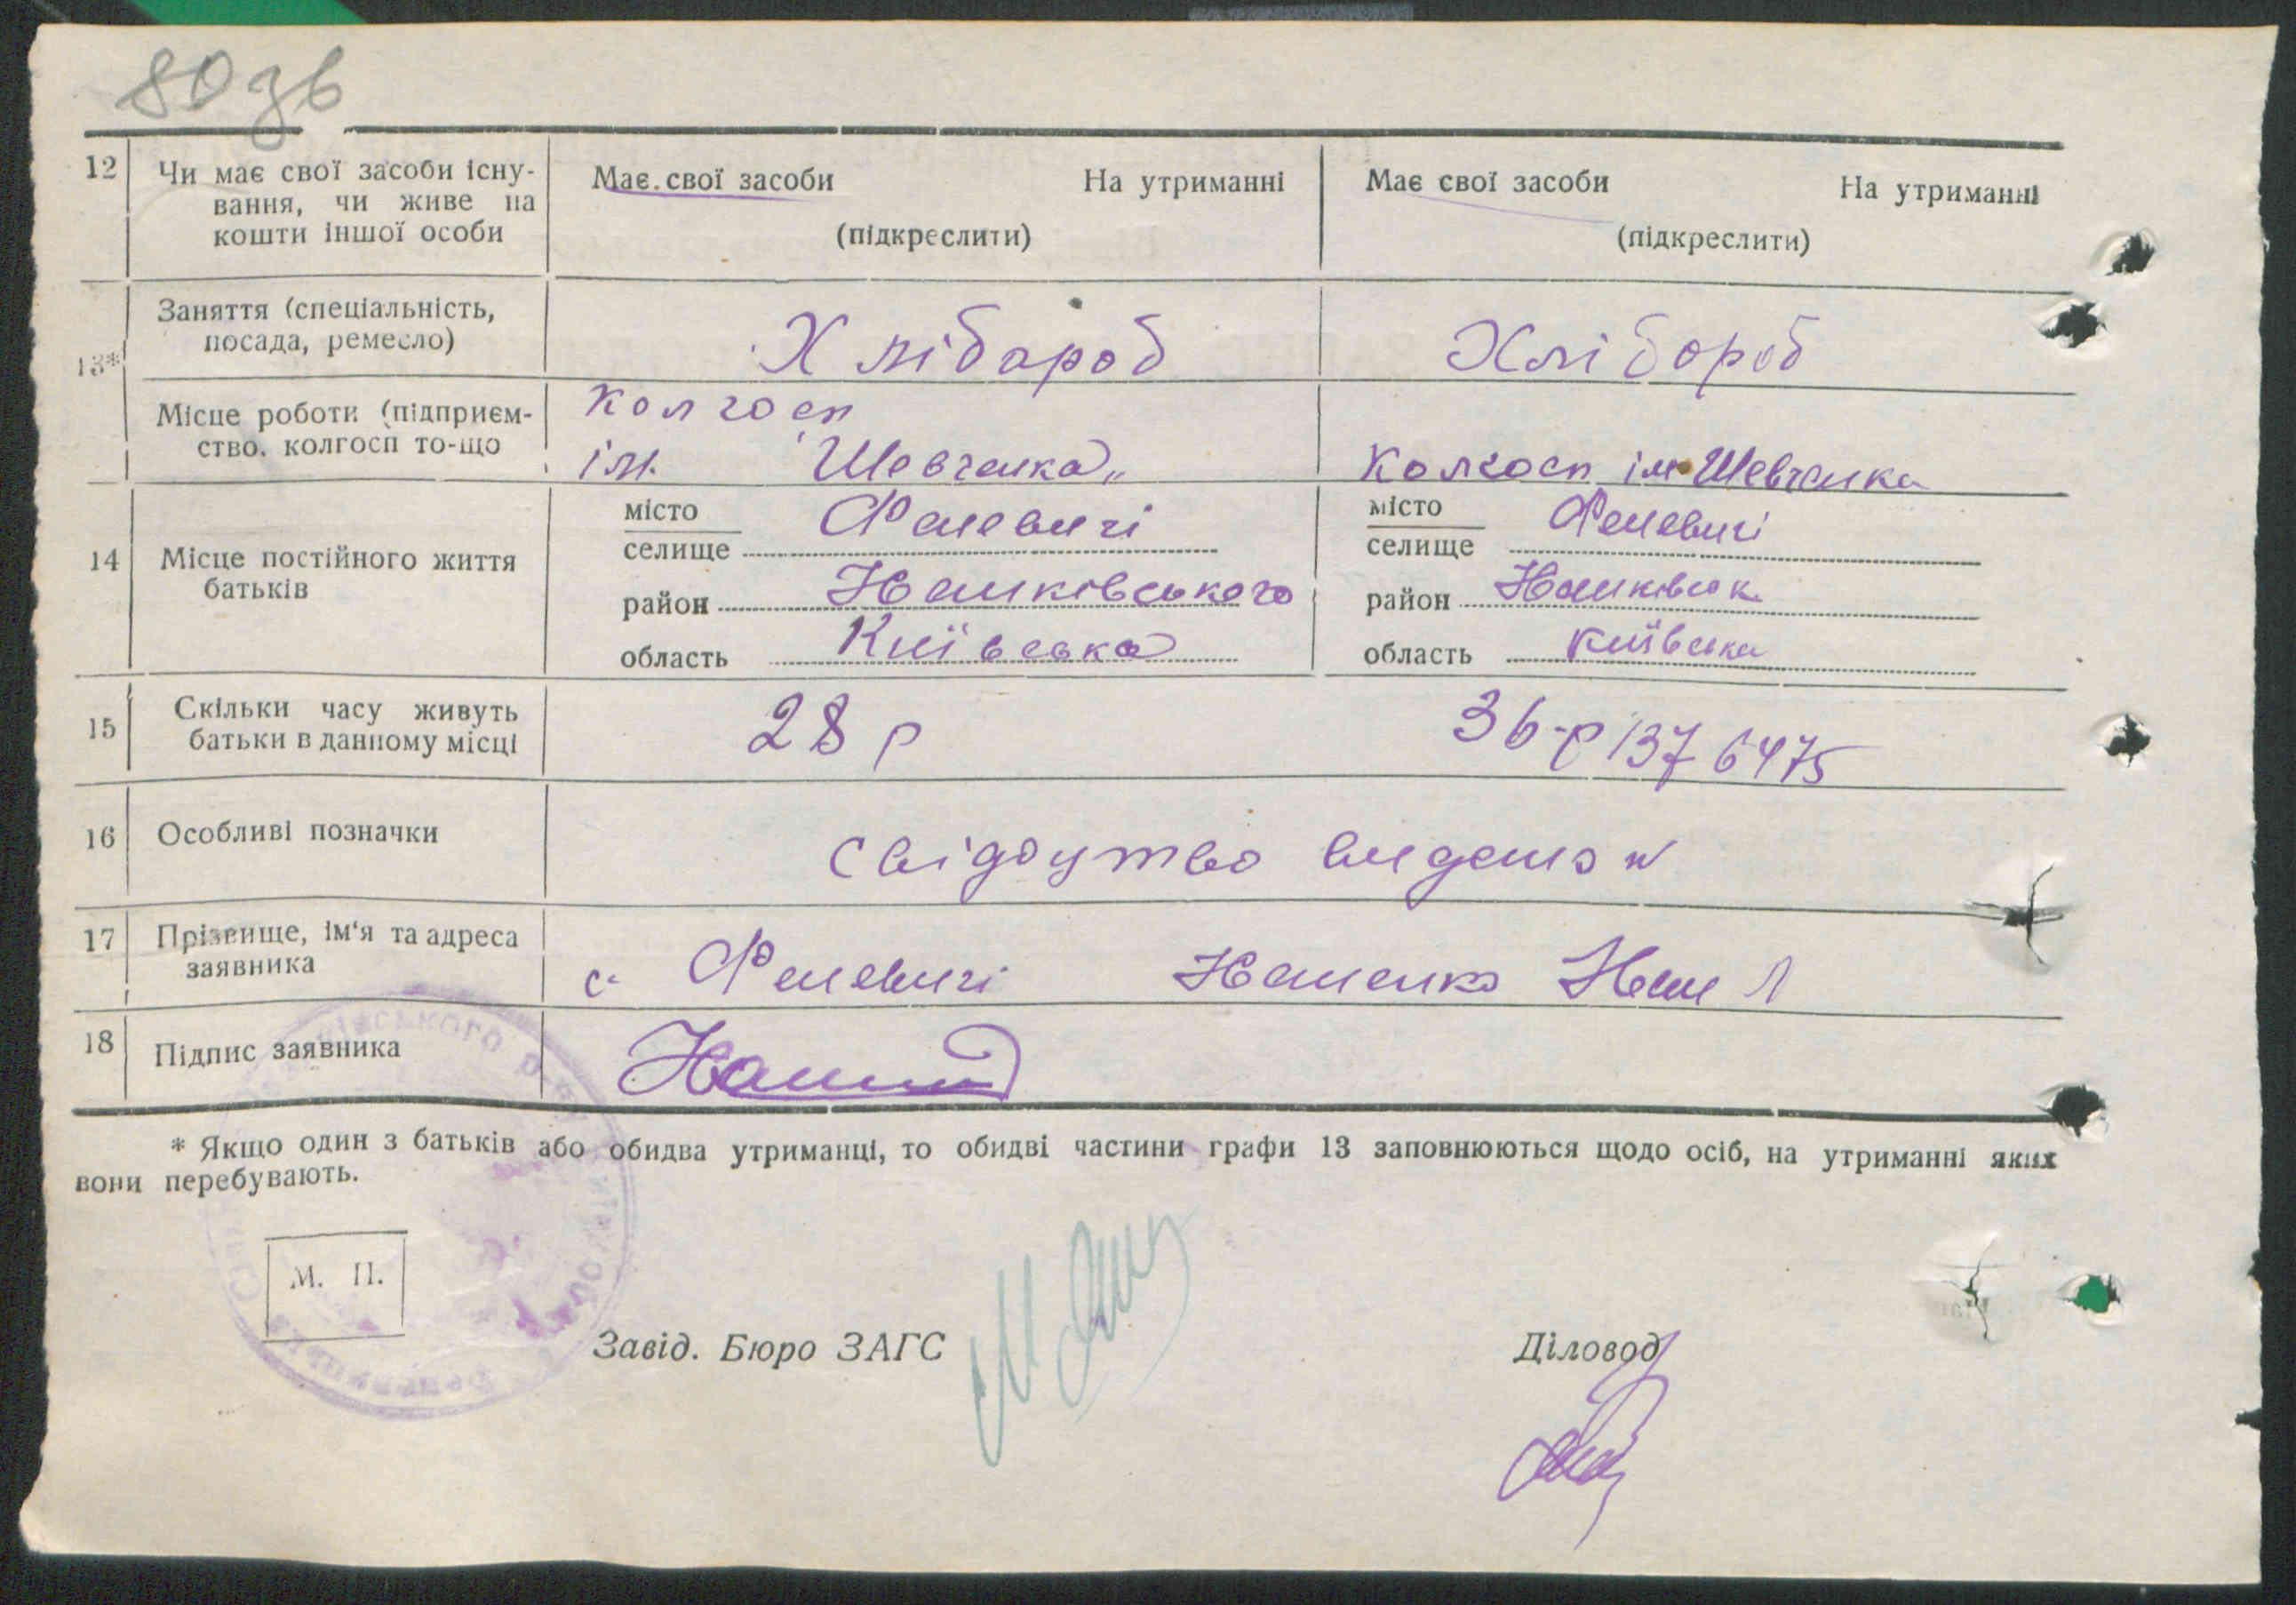 80 зв
12 Чи має свої засоби існу-
вання, чи живе на
кошти іншої особи
Має свої засоби На утриманні
(підкреслити)
Має свої засоби На утриманні
(підкреслити)
13* Заняття (спеціальність,
посада, ремесло)
Хлібароб
Хлібороб
Місце роботи (підприєм-
ство. колгосп то-що
Колгосп
ім. "Шевченка"
Колгосп ім Шевченка
14 Місце постійного життя
батьків
місто
селище Феневичі
район
область Київська
місто
селище Феневичі
район
область Київська
15 Скільки часу живуть
батьки в данному місці
28 р
36-р 137 6475
16 Особливі позначки
Свідоцтво видано
17 Прізвище, ім'я та адреса
заявника
с. Феневичі
18 Підпис заявника
* Якщо один з батьків або обидва утриманці, то обидві частини графи 13 заповнюються щодо осіб, на утриманні яких
вони перебувають.
М. П.
Завід. Бюро ЗАГС
Діловод